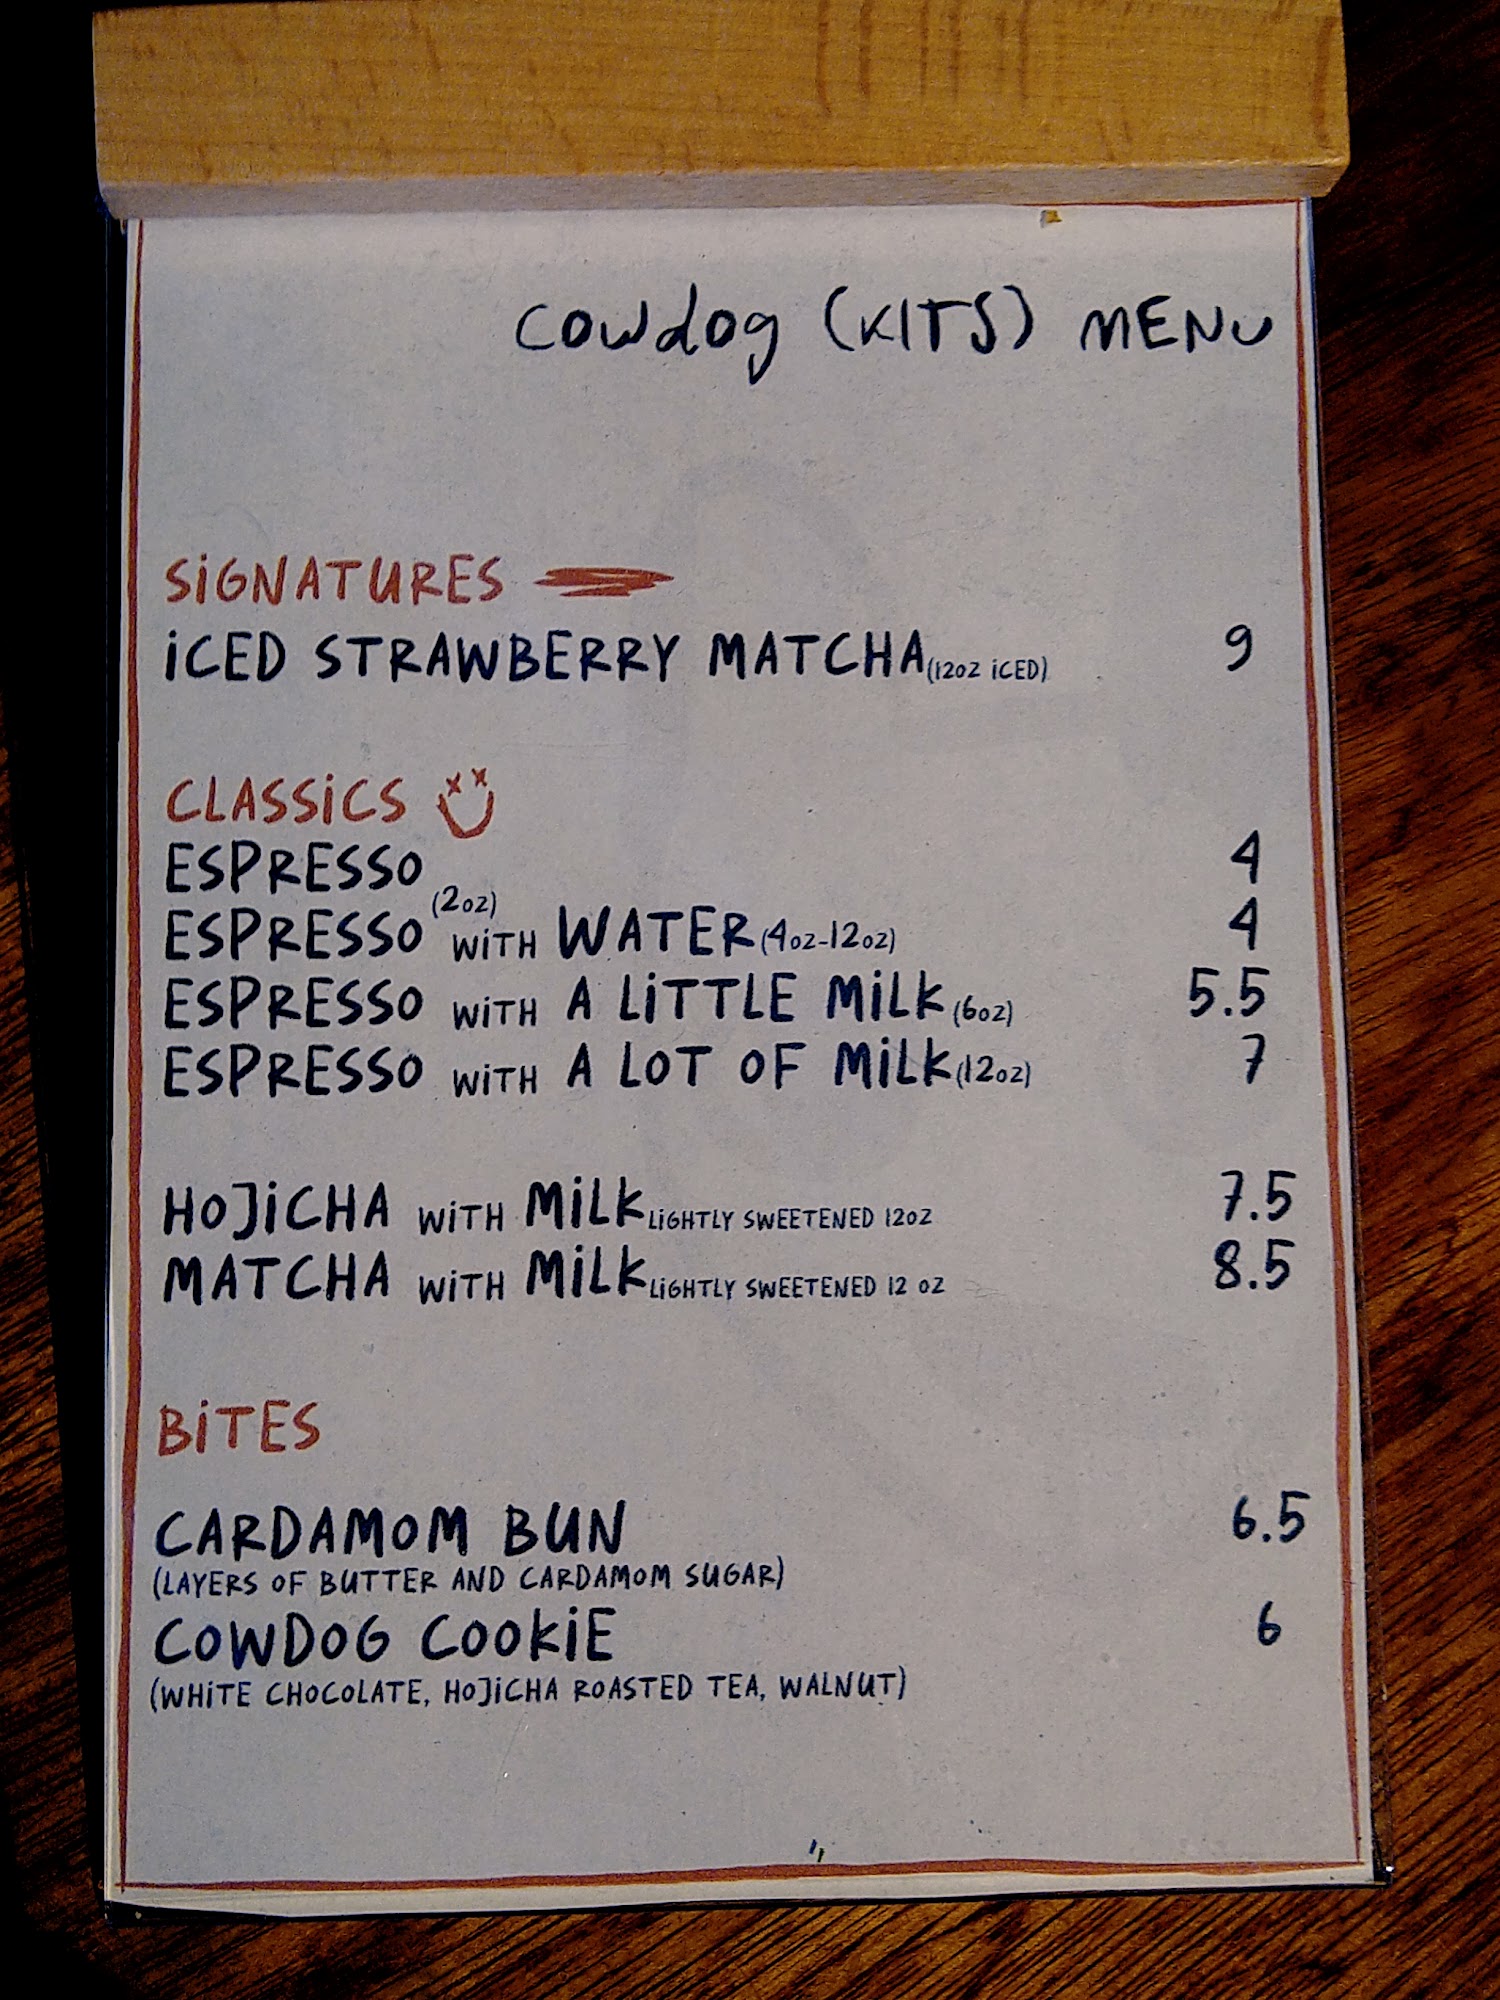 cowdog (KITS) MENU
SIGNATURES
ICED STRAWBERRY MATCHA (12OZ ICED) 9
CLASSICS
ESPRESSO (2OZ) 4
ESPRESSO WITH WATER (4OZ-12OZ) 4
ESPRESSO WITH A LITTLE MILK (6OZ) 5.5
ESPRESSO WITH A LOT OF MILK (12OZ) 7
HOJICHA WITH MILK LIGHTLY SWEETENED 12OZ 7.5
MATCHA WITH MILK LIGHTLY SWEETENED 12 OZ 8.5
BITES
CARDAMOM BUN 6.5
(LAYERS OF BUTTER AND CARDAMOM SUGAR)
COWDOG COOKIE 6
(WHITE CHOCOLATE, HOJICHA ROASTED TEA, WALNUT)